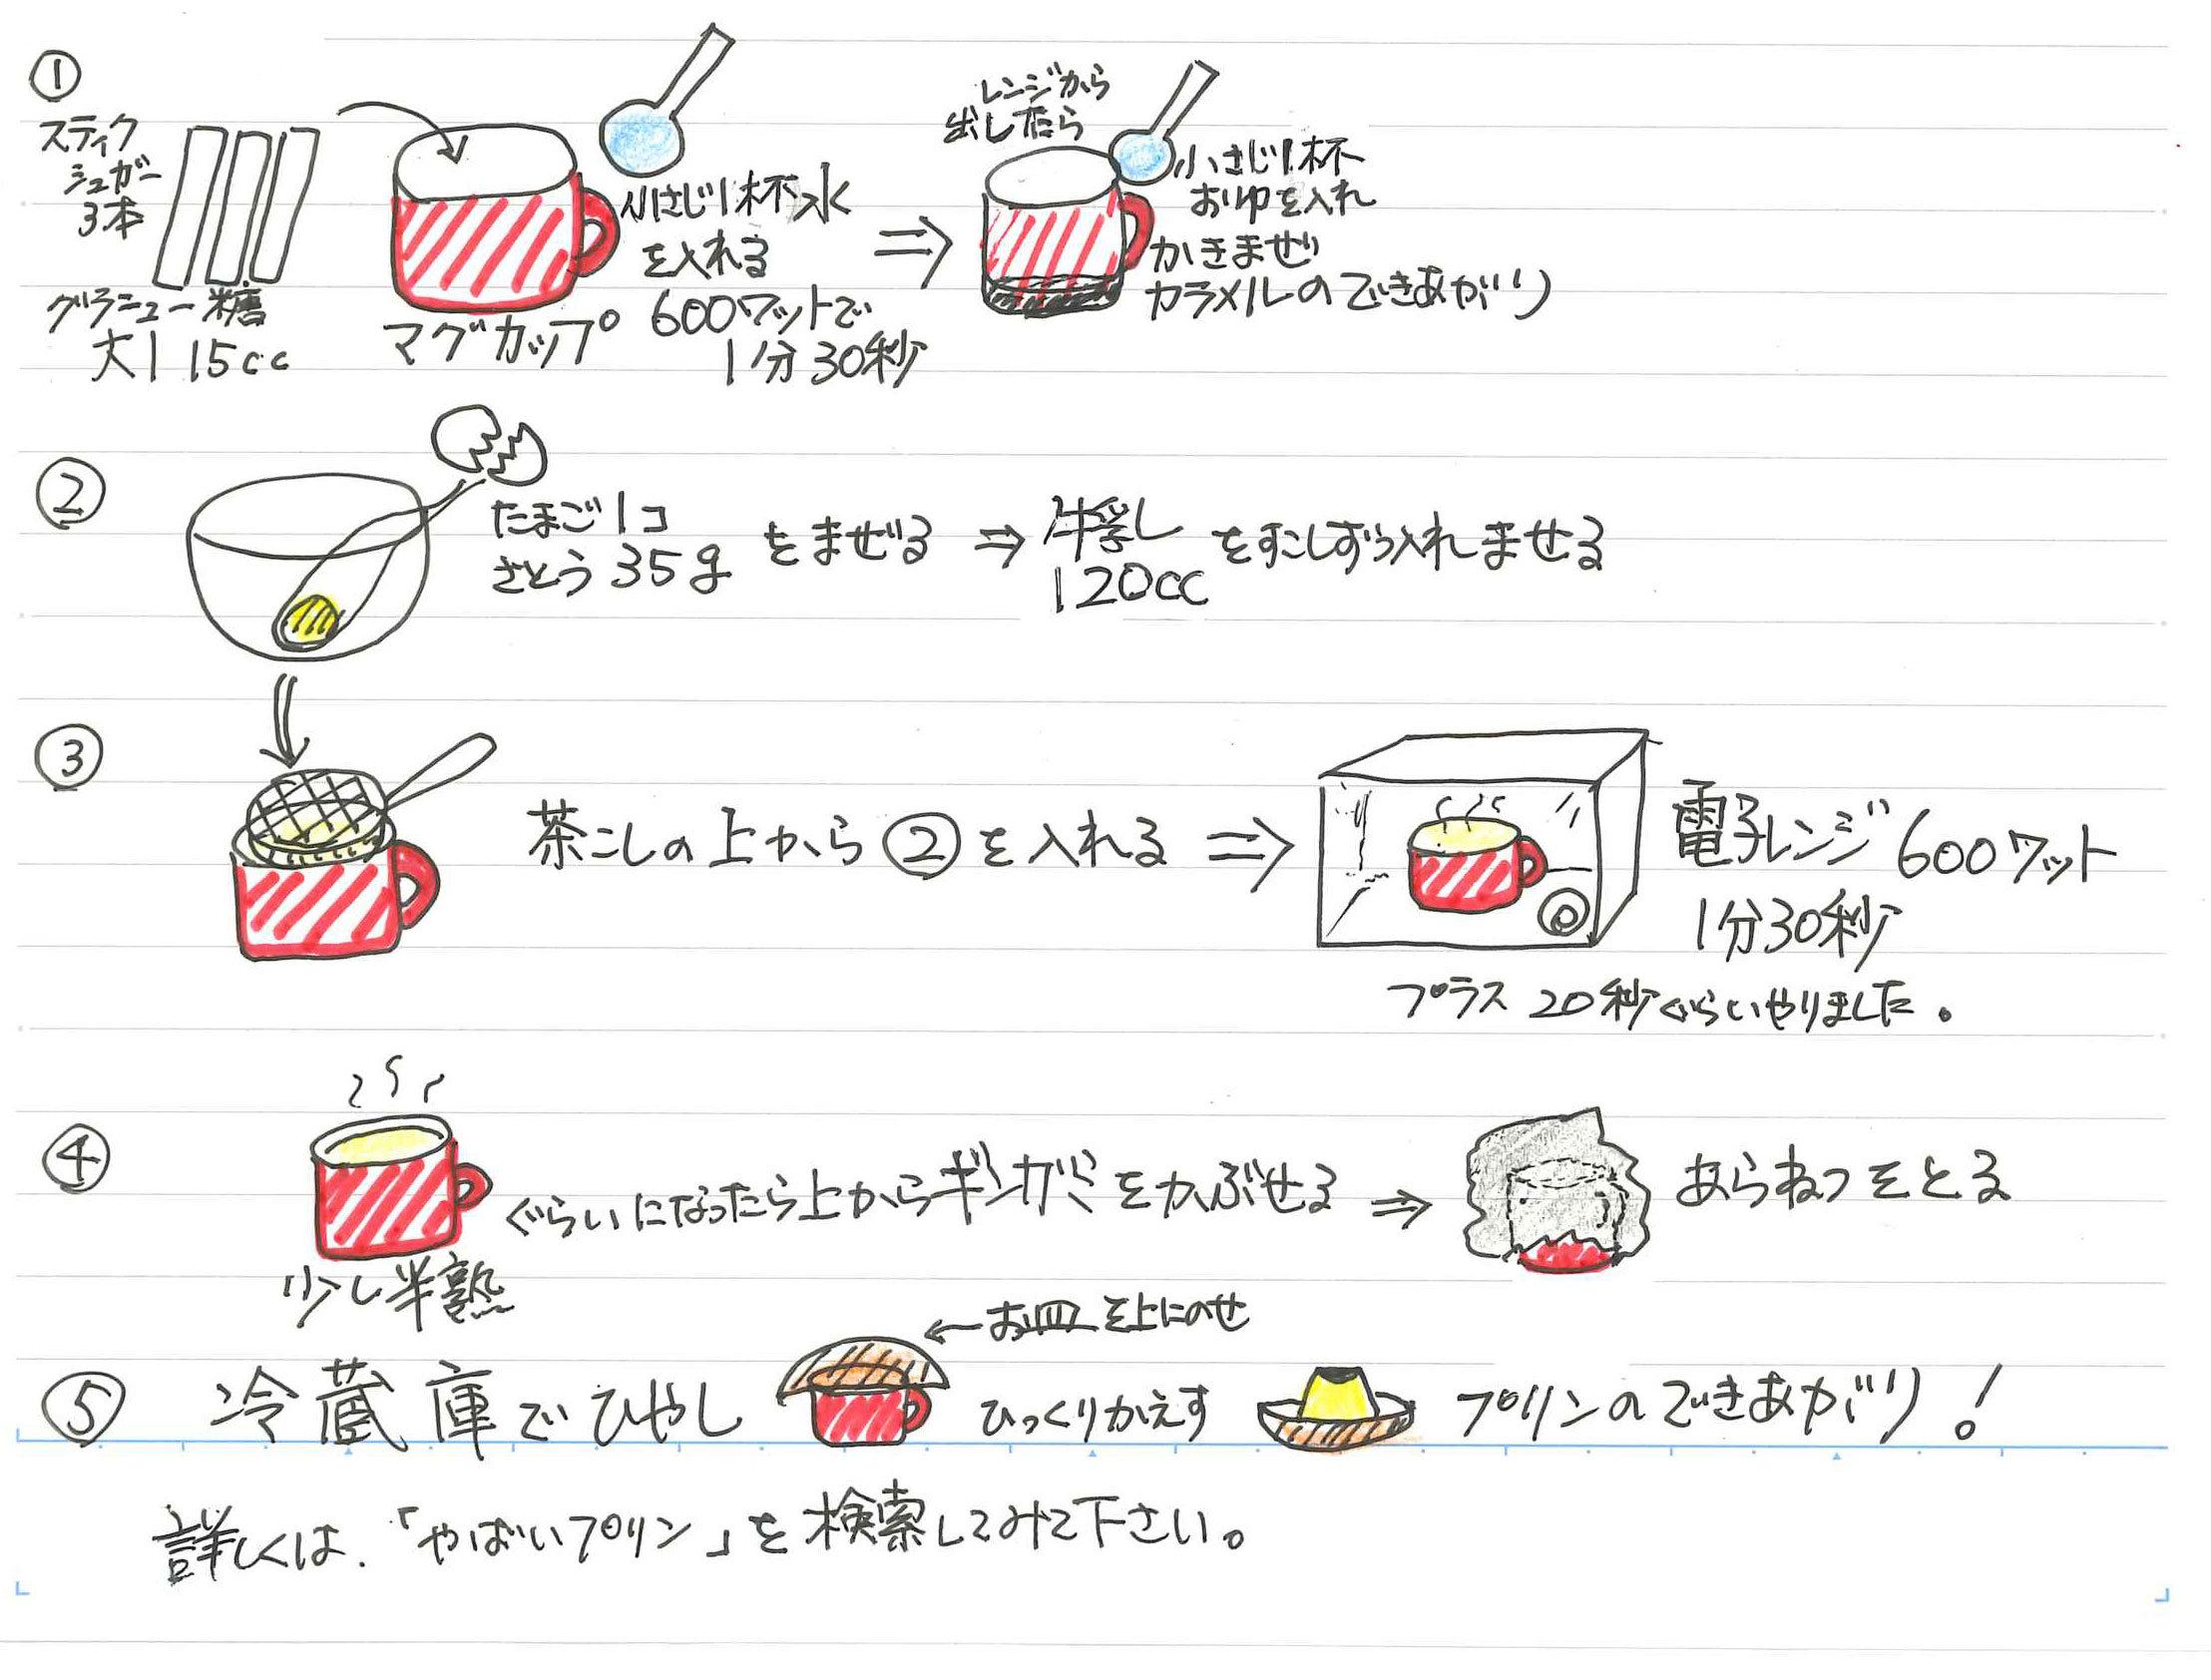 ①
スティク
シュガー
3本
グラニュー糖
大1 15cc
マグカップ
小さじ1杯水
を入れる
600ワットで
1分30秒
⇒
レンジから
出したら
小さじ1杯
おゆを入れ
かきまぜ
カラメルのできあがり
②
たまご1コ
さとう35g
をまぜる ⇒ 牛乳し
120cc
をすこしずつ入れませる
③
茶こしの上から②を入れる ⇒
電子レンジ600ワット
1分30秒
プラス20秒ぐらいやりました。
④
少し半熟
ぐらいになったら上からギンガミをかぶせる ⇒
あらねつをとる
⑤ 冷蔵庫でひやし
←お皿を上にのせ
ひっくりかえす
プリンのできあがり!
詳しくは.「やばいプリン」を検索してみて下さい。